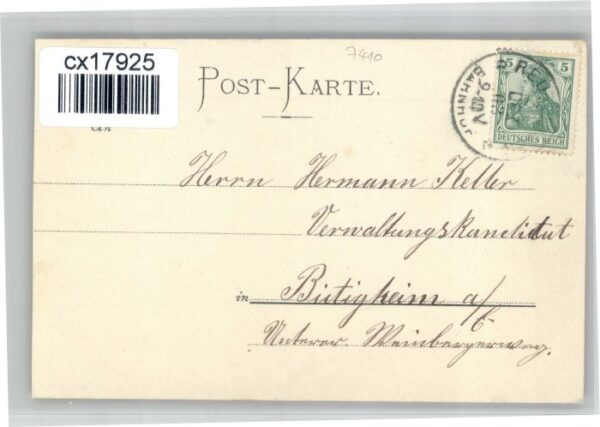 cx17925
7410
POST-KARTE.
An
5 5
DEUTSCHES REICH
BAHNHOF
Herrn Hermann Keller
Verwaltungskandidat
in Bietigheim a/
Unterer Weinbergerweg.